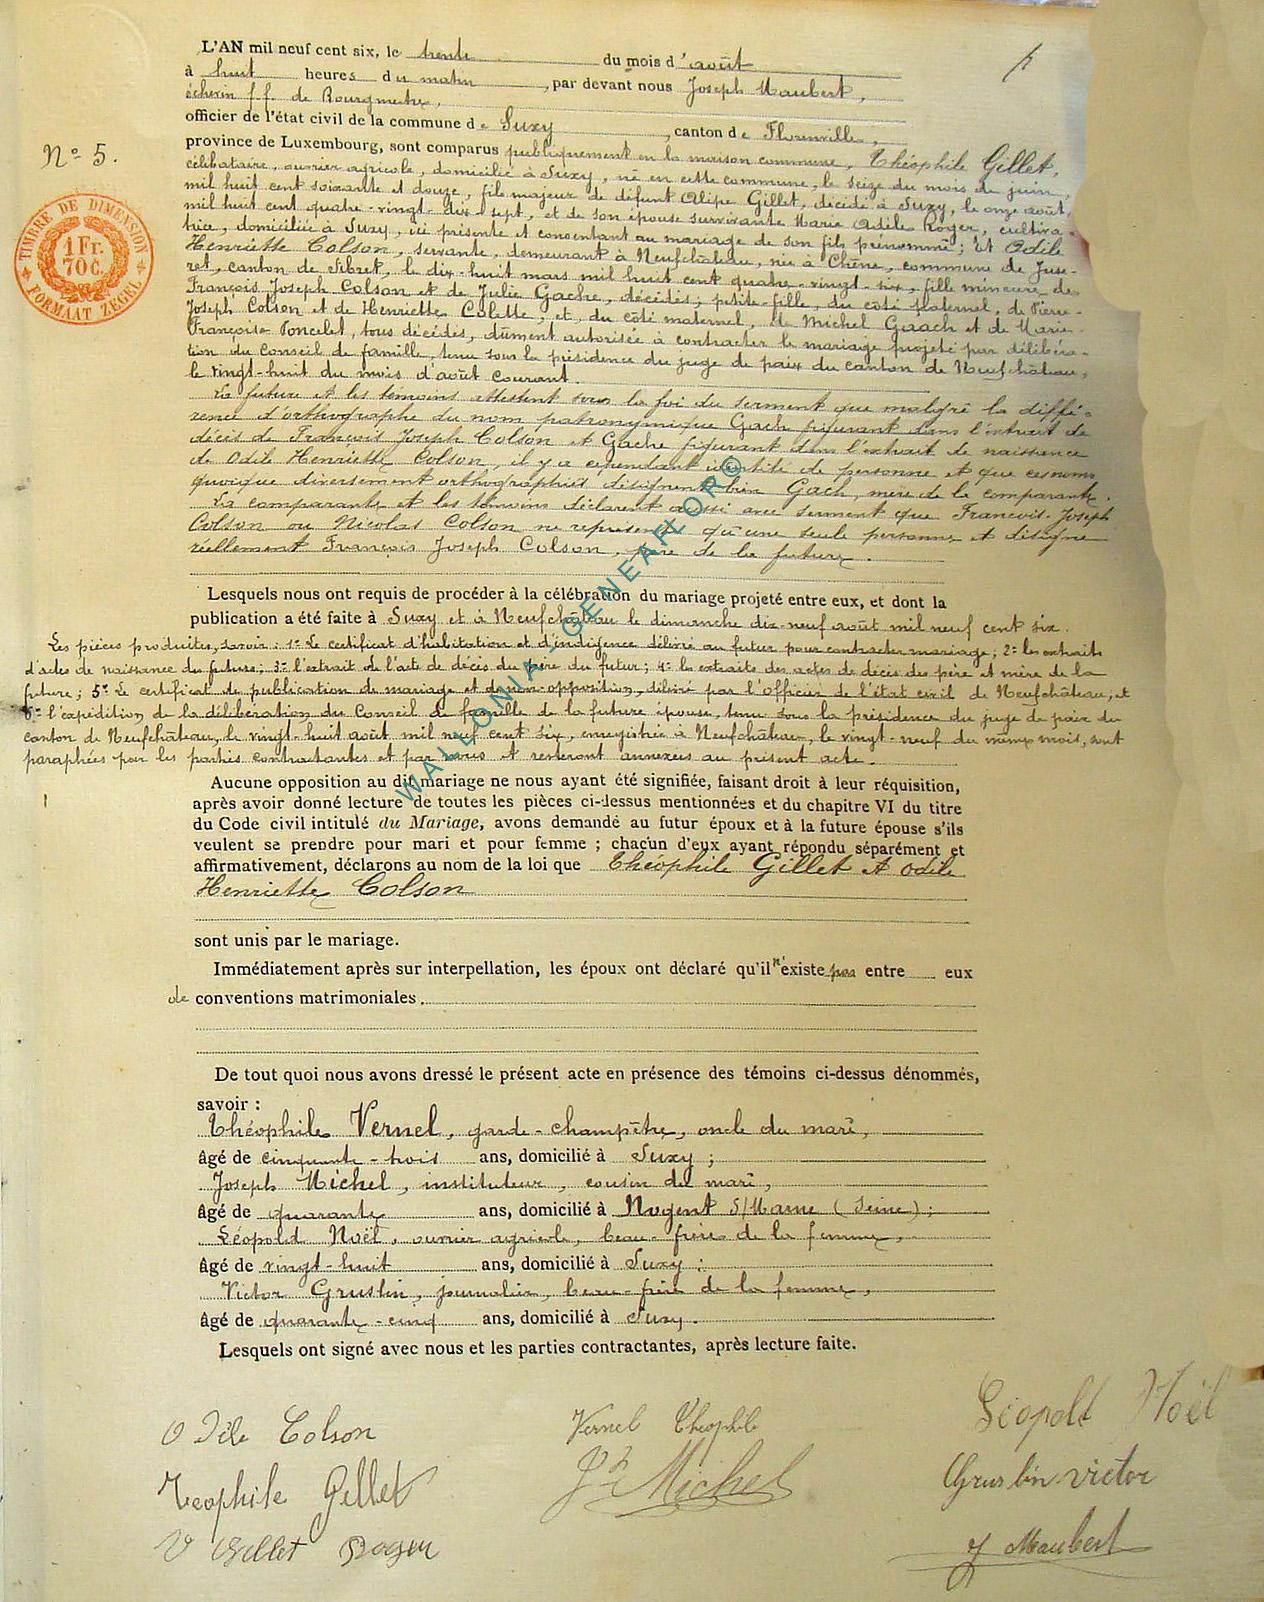 L'AN mil neuf cent six, le trente du mois d'août
à huit heures du matin, par devant nous Joseph Maubert,
échevin f.f. de Bourgmestre,
officier de l'état civil de la commune de Suxy, canton de Florenville,
province de Luxembourg, sont comparus publiquement en la maison commune, Théophile Gillet,
célibataire, ouvrier agricole, domicilié à Suxy, né en cette commune, le seize du mois de juin,
mil huit cent soixante et douze, fils majeur de défunt Alipe Gillet, décédé à Suxy, le onze août,
mil huit cent quatre-vingt-dix-sept, et de son épouse survivante Marie Adèle Roger, cultiva-
trice, domiciliée à Suxy, ici présente et consentant au mariage de son fils prénommé; Et Odile
Henriette Colson, servante, demeurant à Neufchâteau, née à Chêne, commune de Juse-
ret, canton de Sibret, le dix-huit mars mil huit cent quatre-vingt-six, fille mineure de
François Joseph Colson et de Julie Gache, décédés; petite-fille, du côté paternel, de Pierre-
Joseph Colson et de Henriette Colette, et, du côté maternel, de Michel Gaach et de Marie-
Françoise Poncelet, tous décédés, dûment autorisée à contracter le mariage projeté par délibéra-
tion du Conseil de famille, tenu sous la présidence du juge de paix du canton de Neufchâteau,
le vingt-huit du mois d'août courant.
La future et les témoins attestent sous la foi du serment que malgré la diffé-
rence d'orthographe du nom patronymique Gach figurant dans l'extrait de
décès de François Joseph Colson et Gache figurant dans l'extrait de naissance
de Odile Henriette Colson, il y a cependant identité de personne et que ces noms
quoique diversement orthographiés désignent bien Gach, mère de la comparante.
La comparante et les témoins déclarent aussi avec serment que François-Joseph
Colson ou Nicolas Colson ne représente qu'une seule personne et désigne
réellement François Joseph Colson, père de la future.
Lesquels nous ont requis de procéder à la célébration du mariage projeté entre eux, et dont la
publication a été faite à Suxy et à Neufchâteau le dimanche dix-neuf août mil neuf cent six.
Les pièces produites, savoir: 1º Le certificat d'habitation et d'indigence délivré au futur pour contracter mariage; 2º les extraits
d'actes de naissance du future; 3º l'extrait de l'acte de décès du père du futur; 4º les extraits des actes de décès des père et mère de la
future; 5º Le certificat de publication de mariage et de non-opposition, délivré par l'Officier de l'état civil de Neufchâteau, et
6º l'expédition de la délibération du Conseil de famille de la future épouse, tenu sous la présidence du juge de paix du
canton de Neufchâteau, le vingt-huit août mil neuf cent six, enregistrée à Neufchâteau, le vingt-neuf du même mois, sont
paraphées par les parties contractantes et par nous et resteront annexées au présent acte.
Aucune opposition au dit mariage ne nous ayant été signifiée, faisant droit à leur réquisition,
après avoir donné lecture de toutes les pièces ci-dessus mentionnées et du chapitre VI du titre
du Code civil intitulé du Mariage, avons demandé au futur époux et à la future épouse s'ils
veulent se prendre pour mari et pour femme ; chacun d'eux ayant répondu séparément et
affirmativement, déclarons au nom de la loi que Théophile Gillet et Odile
Henriette Colson
sont unis par le mariage.
Immédiatement après sur interpellation, les époux ont déclaré qu'il n'existe pas entre eux
de conventions matrimoniales.
De tout quoi nous avons dressé le présent acte en présence des témoins ci-dessus dénommés,
savoir :
Théophile Vernel, garde-champêtre, oncle du mari,
âgé de cinquante-trois ans, domicilié à Suxy;
Joseph Michel, instituteur, cousin du mari,
âgé de quarante ans, domicilié à Nogent S/Marne (Seine);
Léopold Noël, ouvrier agricole, beau-frère de la femme,
âgé de vingt-huit ans, domicilié à Suxy;
Victor Gruslin, journalier, beau-frère de la femme,
âgé de quarante-cinq ans, domicilié à Suxy.
Lesquels ont signé avec nous et les parties contractantes, après lecture faite.
Odile Colson
Vernel Théophile
Léopold Noël
Teophile Gillet
Jh Michel
Gruslin Victor
V Gillet Roger
J Maubert
Nº 5.
TIMBRE DE DIMENSION
1 Fr.
70 C.
FORMAAT ZEGEL
WALLONIA - GENEAFLOR©